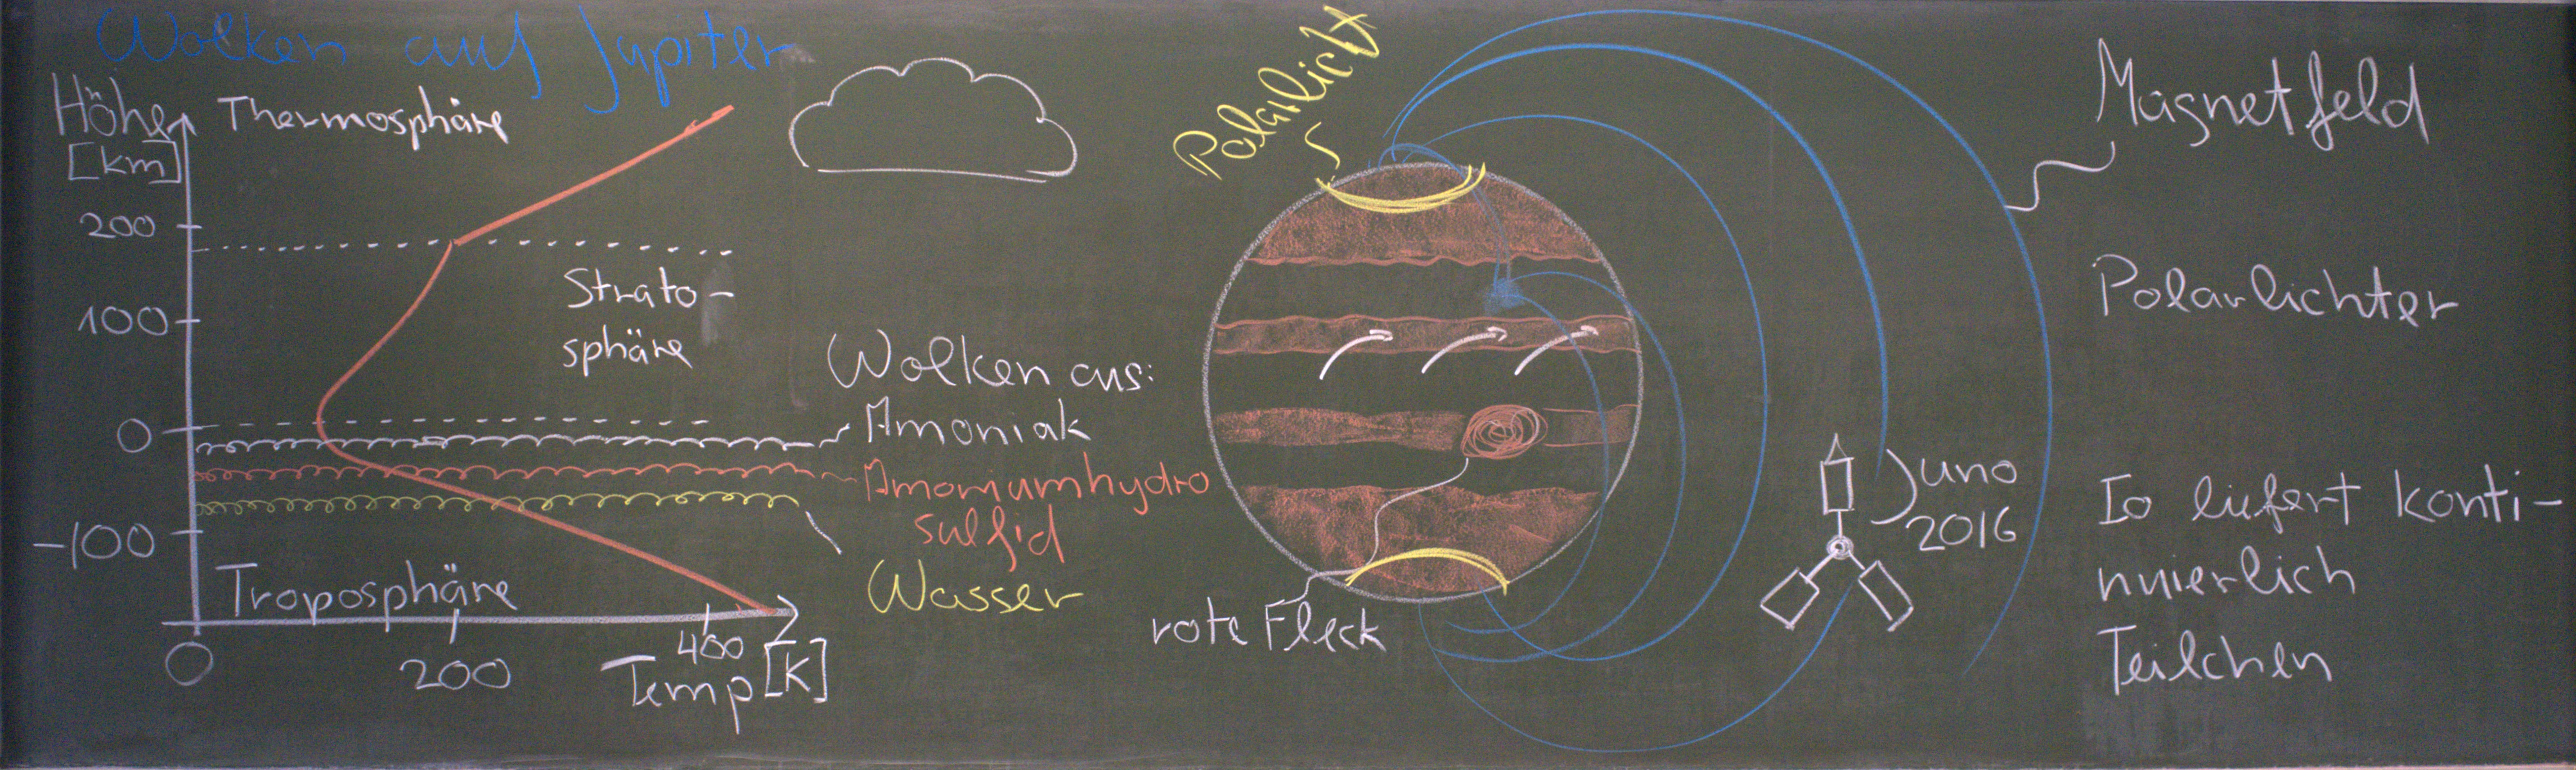 Wolken auf Jupiter
Höhe
[km]
Thermosphäre
200
100
0
-100
Strato-
sphäre
Troposphäre
0
200
400
Temp [K]
Wolken aus:
Amoniak
Amomumhydro
sulfid
Wasser
Polarlicht
rote Fleck
Juno
2016
Magnetfeld
Polarlichter
Io liefert konti-
nuierlich
Teilchen